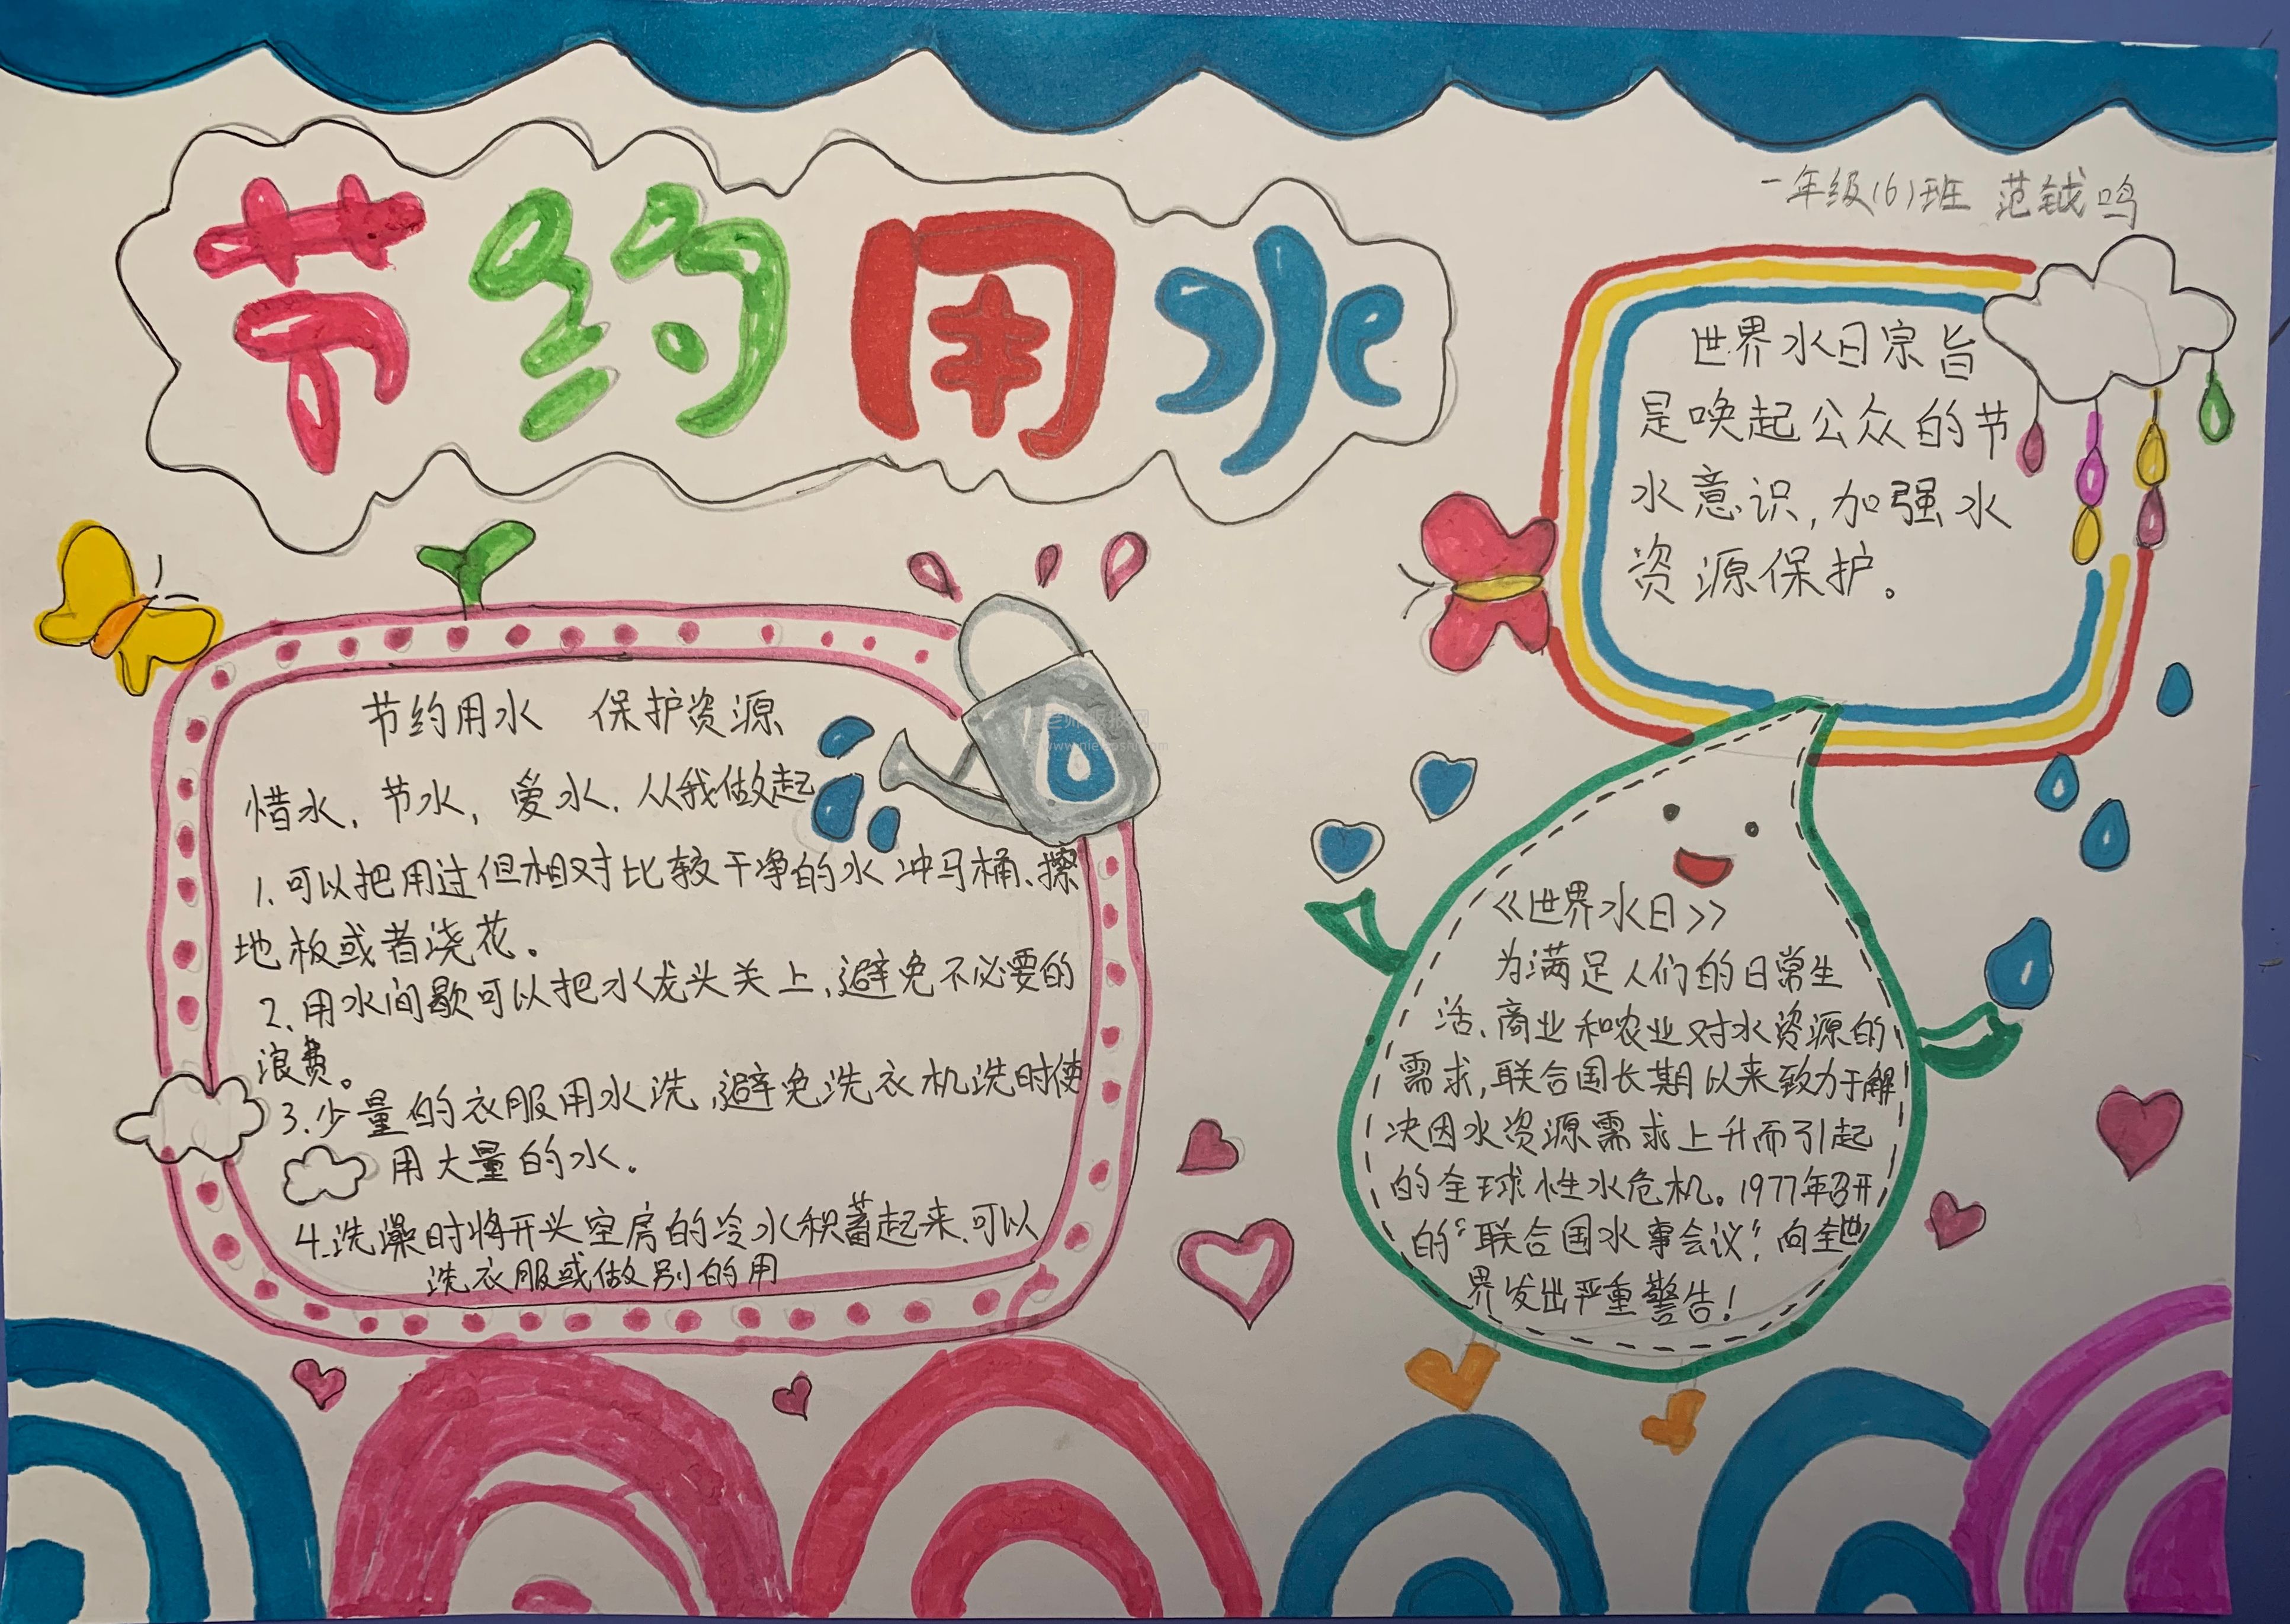 节约用水
一年级(6)班 范钺鸣
世界水日宗旨
是唤起公众的节
水意识,加强水
资源保护。
节约用水 保护资源
惜水,节水,爱水,从我做起
1.可以把用过但相对比较干净的水冲马桶、擦
地板或者浇花。
2、用水间歇可以把水龙头关上,避免不必要的
浪费。
3.少量的衣服用水洗,避免洗衣机洗时使
用大量的水。
4.洗澡时将开头空房的冷水积蓄起来.可以
洗衣服或做别的用
《世界水日》
为满足人们的日常生
活、商业和农业对水资源的
需求,联合国长期以来致力于解
决因水资源需求上升而引起
的全球性水危机。1977年召开
的“联合国水事会议”,向全世
界发出严重警告!